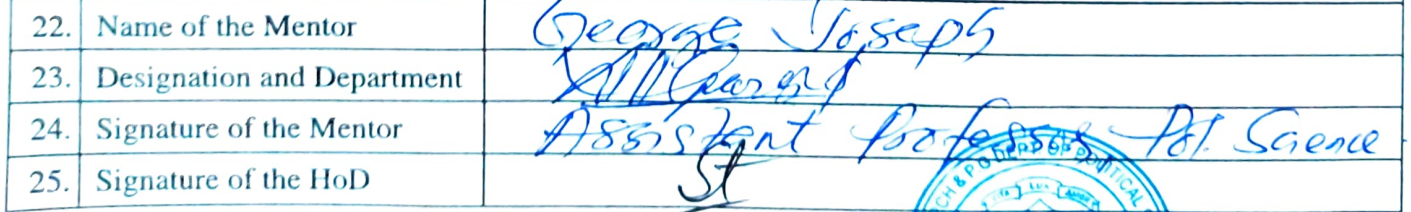 22. Name of the Mentor George Joseph
23. Designation and Department
24. Signature of the Mentor Assistant Professor Pol. Science
25. Signature of the HoD
CH & P G DEPT OF POLITICAL